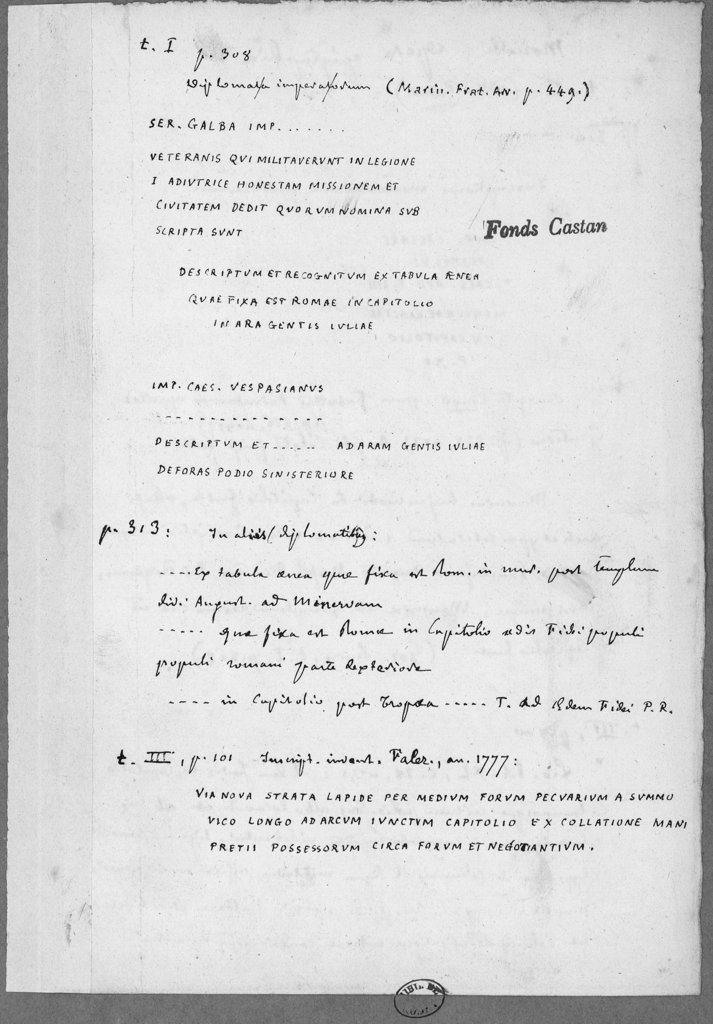 t. I p. 308
Diplomata imperatorum (Marin. Frat. Arv. p. 449.)
SER. GALBA IMP. . . . . . .
VETERANIS QVI MILITAVERVNT IN LEGIONE
I ADIVTRICE HONESTAM MISSIONEM ET
CIVITATEM DEDIT QVORVM NOMINA SVB
SCRIPTA SVNT
Fonds Castan
DESCRIPTVM ET RECOGNITVM EX TABVLA ÆNEA
QVAE FIXA EST ROMAE IN CAPITOLIO
IN ARA GENTIS IVLIAE
IMP. CAES. VESPASIANVS
- - - - - - - - - - - - - -
DESCRIPTVM ET . . . . . . AD ARAM GENTIS IVLIAE
DEFORAS PODIO SINISTERIORE
p. 313: In aliis (diplomatibus):
. . . . Ex tabula ænea quæ fixa est Rom. in mur. post templum
divi August. ad Minervam
. . . . . quæ fixa est Romæ in Capitolio ædis Fidei populi
populi romani parte dexteriore
- - - - in Capitolio post tropæa . . . . . T. Ad Ædem Fidei P. R.
t. III, p. 101 Inscript. invent. Faler., an. 1777:
VIA NOVA STRATA LAPIDE PER MEDIVM FORVM PECVARIVM A SVMMO
VICO LONGO AD ARCVM IVNCTVM CAPITOLIO EX COLLATIONE MANI
PRETII POSSESSORVM CIRCA FORVM ET NEGOTIANTIVM.